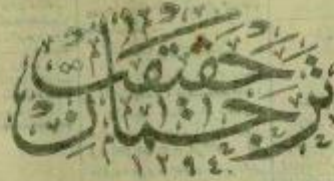 ترجمان حقيقت
١٢٩٤